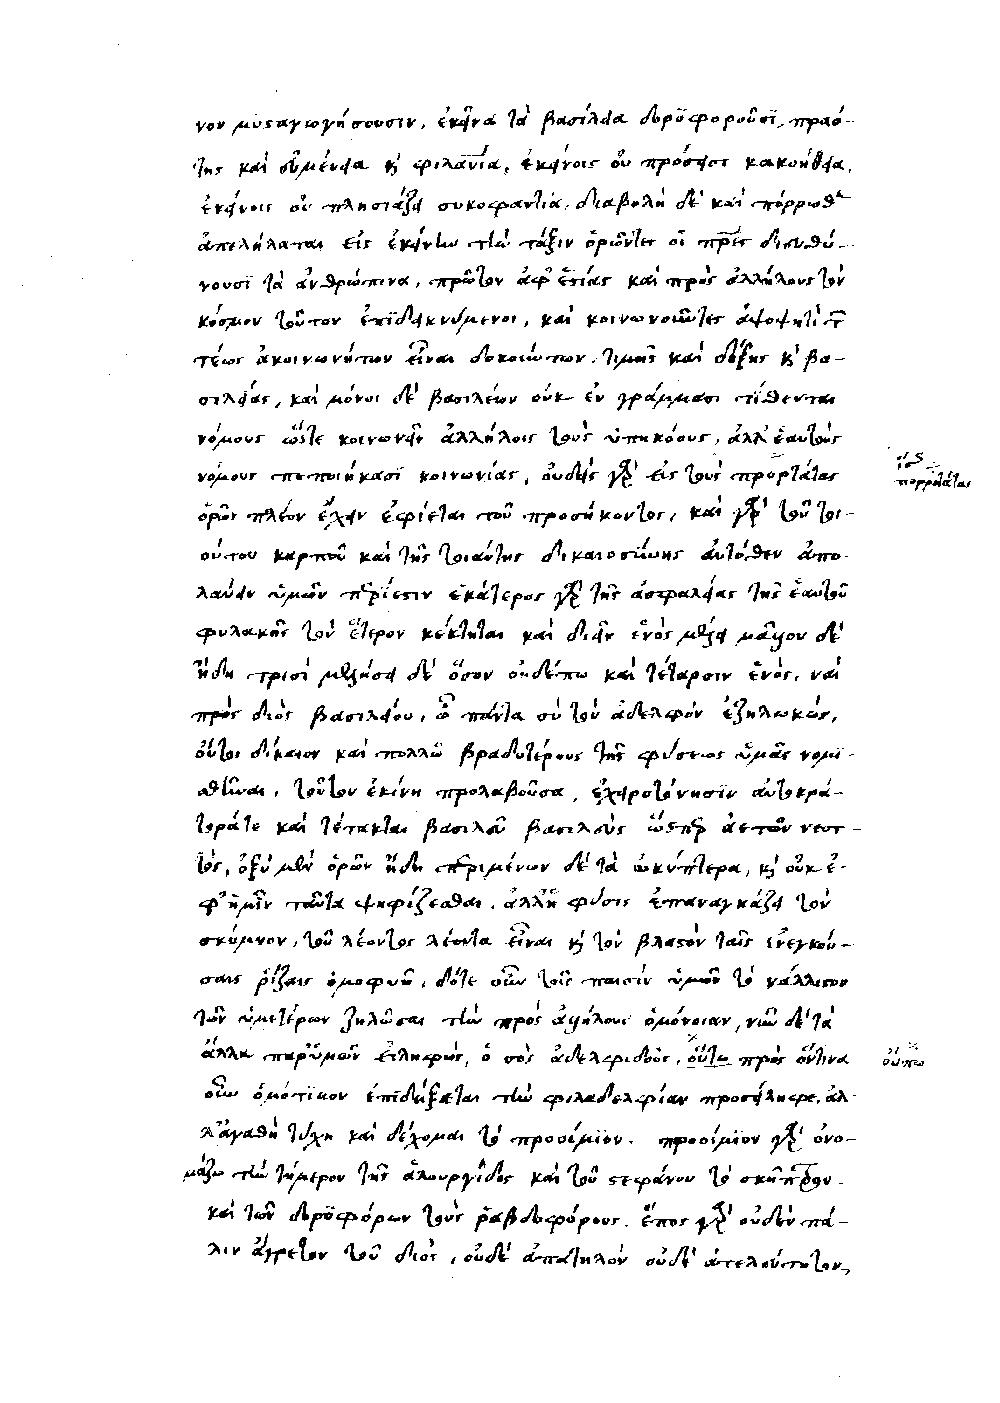 νον μυσαγωγήσουσιν, ἐκεῖνα τὰ βασίλεια δορυφοροῦσϊ, πραό-
της καὶ εὐμένεια κ̀ φιλανία, ἐκείνοις οὐ πρόσεισι κακοήθεια,
ἐκείνοις οὐ πλησιάζει συκοφαντία, διαβολὴ δὲ καὶ πόρρωθεν
ἀπελήλαται εἰς ἐκείνην τὴν τάξιν ὁρῶντες οἱ πρες διευθύ-
νουσϊ τὰ ἀνθρώπινα, πρῶτον ἀφ' ἑστίας καὶ πρὸς ἀλλήλους τὸν
κόσμον τοῦτον ἐπϊδεικνύμενοι, καὶ κοινωνοῦντες ἀψοφητὶ τ
τέως ἀκοινωνήτων εἶναι δοκούντων, τιμῆς καὶ δόξης κ̀ βα-
σιλείας, καὶ μόνοι δὲ βασιλέων οὐκ ἐν γράμμασι τίθενται
νόμους ὥστε κοινωνεῖν ἀλλήλοις τοὺς ὑπηκόους, ἀλλ' ἑαυτοὺς
νόμους πεποιήκασϊ κοινωνίας, οὐδεὶς γὰρ εἰς τοὺς προρτάτας
ἴσ πορρωτάτας
ὁρῶν πλέον ἔχειν ἐφίεται τοῦ προσήκοντος, καὶ γὰρ τοῦ τοι-
ούτου καρποῦ καὶ τῆς τοιαύτης δικαιοσύνης αὐτόθεν ἀπο-
λαύειν ὑμῶν περίεστιν ἑκάτερος γὰρ τῆς ἀσφαλείας τῆς ἑαυτοῦ
φυλακῆς τὸν ἕτερον κέκτηται καὶ δυεῖν ἑνὸς μέλει μᾶλλον δὲ
ἤδη τρισὶ μελήσει δὲ ὅσον οὐδέπω καὶ τέταρσιν ἑνὸς, ναὶ
πρὸς διὸς βασιλείου, ὦ πάντα σὺ τὸν ἀδελφὸν ἐζηλωκὼς,
οὔτοι δίκαιον καὶ πολλῶ βραδυτέρους τῆς φύσεως ὑμᾶς νομϊ-
σθῆναι, τοῦτον ἐκείνη προλαβοῦσα, ἐχειροτόνησϊν αὐτοκρά-
τοράτε καὶ τέτακται βασιλεῦ βασιλεὺς ὥσπερ ἀετῶν νεοτ-
τὸς, ὀξὺ μὲν ὁρῶν ἤδη περιμένων δὲ τὰ ὠκύπτερα, κ̀ οὐκ ἐ-
φ' ἡμῖν ταῦτα ψηφίζεσθαι, ἀλλ' ἡ φύσις ἐπαναγκάζει τὸν
σκύμνον, τοῦ λέοντος λέοντα εἶναι κ̀ τὸν βλαστὸν ταῖς ἐνεγκού-
σαις ῥίζαις ὁμοφυῆ, δότε οὖν τοῖς παισὶν ὑμῶν τὸ κάλλιστον
τῶν ὑμετέρων ζηλῶσαι τὴν πρὸς ἀλλήλους ὁμόνοιαν, νῦν δὲ τὰ
ἄλλα παρ' ὑμῶν εἰληφὼς, ὁ σὸς ἀδελφιδοῦς, οὔτω πρὸς ὅντινα
οὔπω
οὖν ὁμότϊμον ἐπιδείξεται τὴν φιλαδελφίαν προσείληφε, ἀλ-
λ' ἀγαθῆ τύχη καὶ δέχομαι τὸ προοίμϊον. προοίμϊον γὰρ ὀνο-
μάζω τὴν τήμερον τῆς ἁλουργίδος καὶ τοῦ στεφάνου τὸ σκῆπτρον
καὶ τῶν δορυφόρων τοὺς ῥαβδοφόρους. ἔπος γὰρ οὐδὲν πά-
λιν ἄγρετον τοῦ διὸς, οὐδὲ ἀπατηλὸν οὐδὲ ἀτελεύτητον,